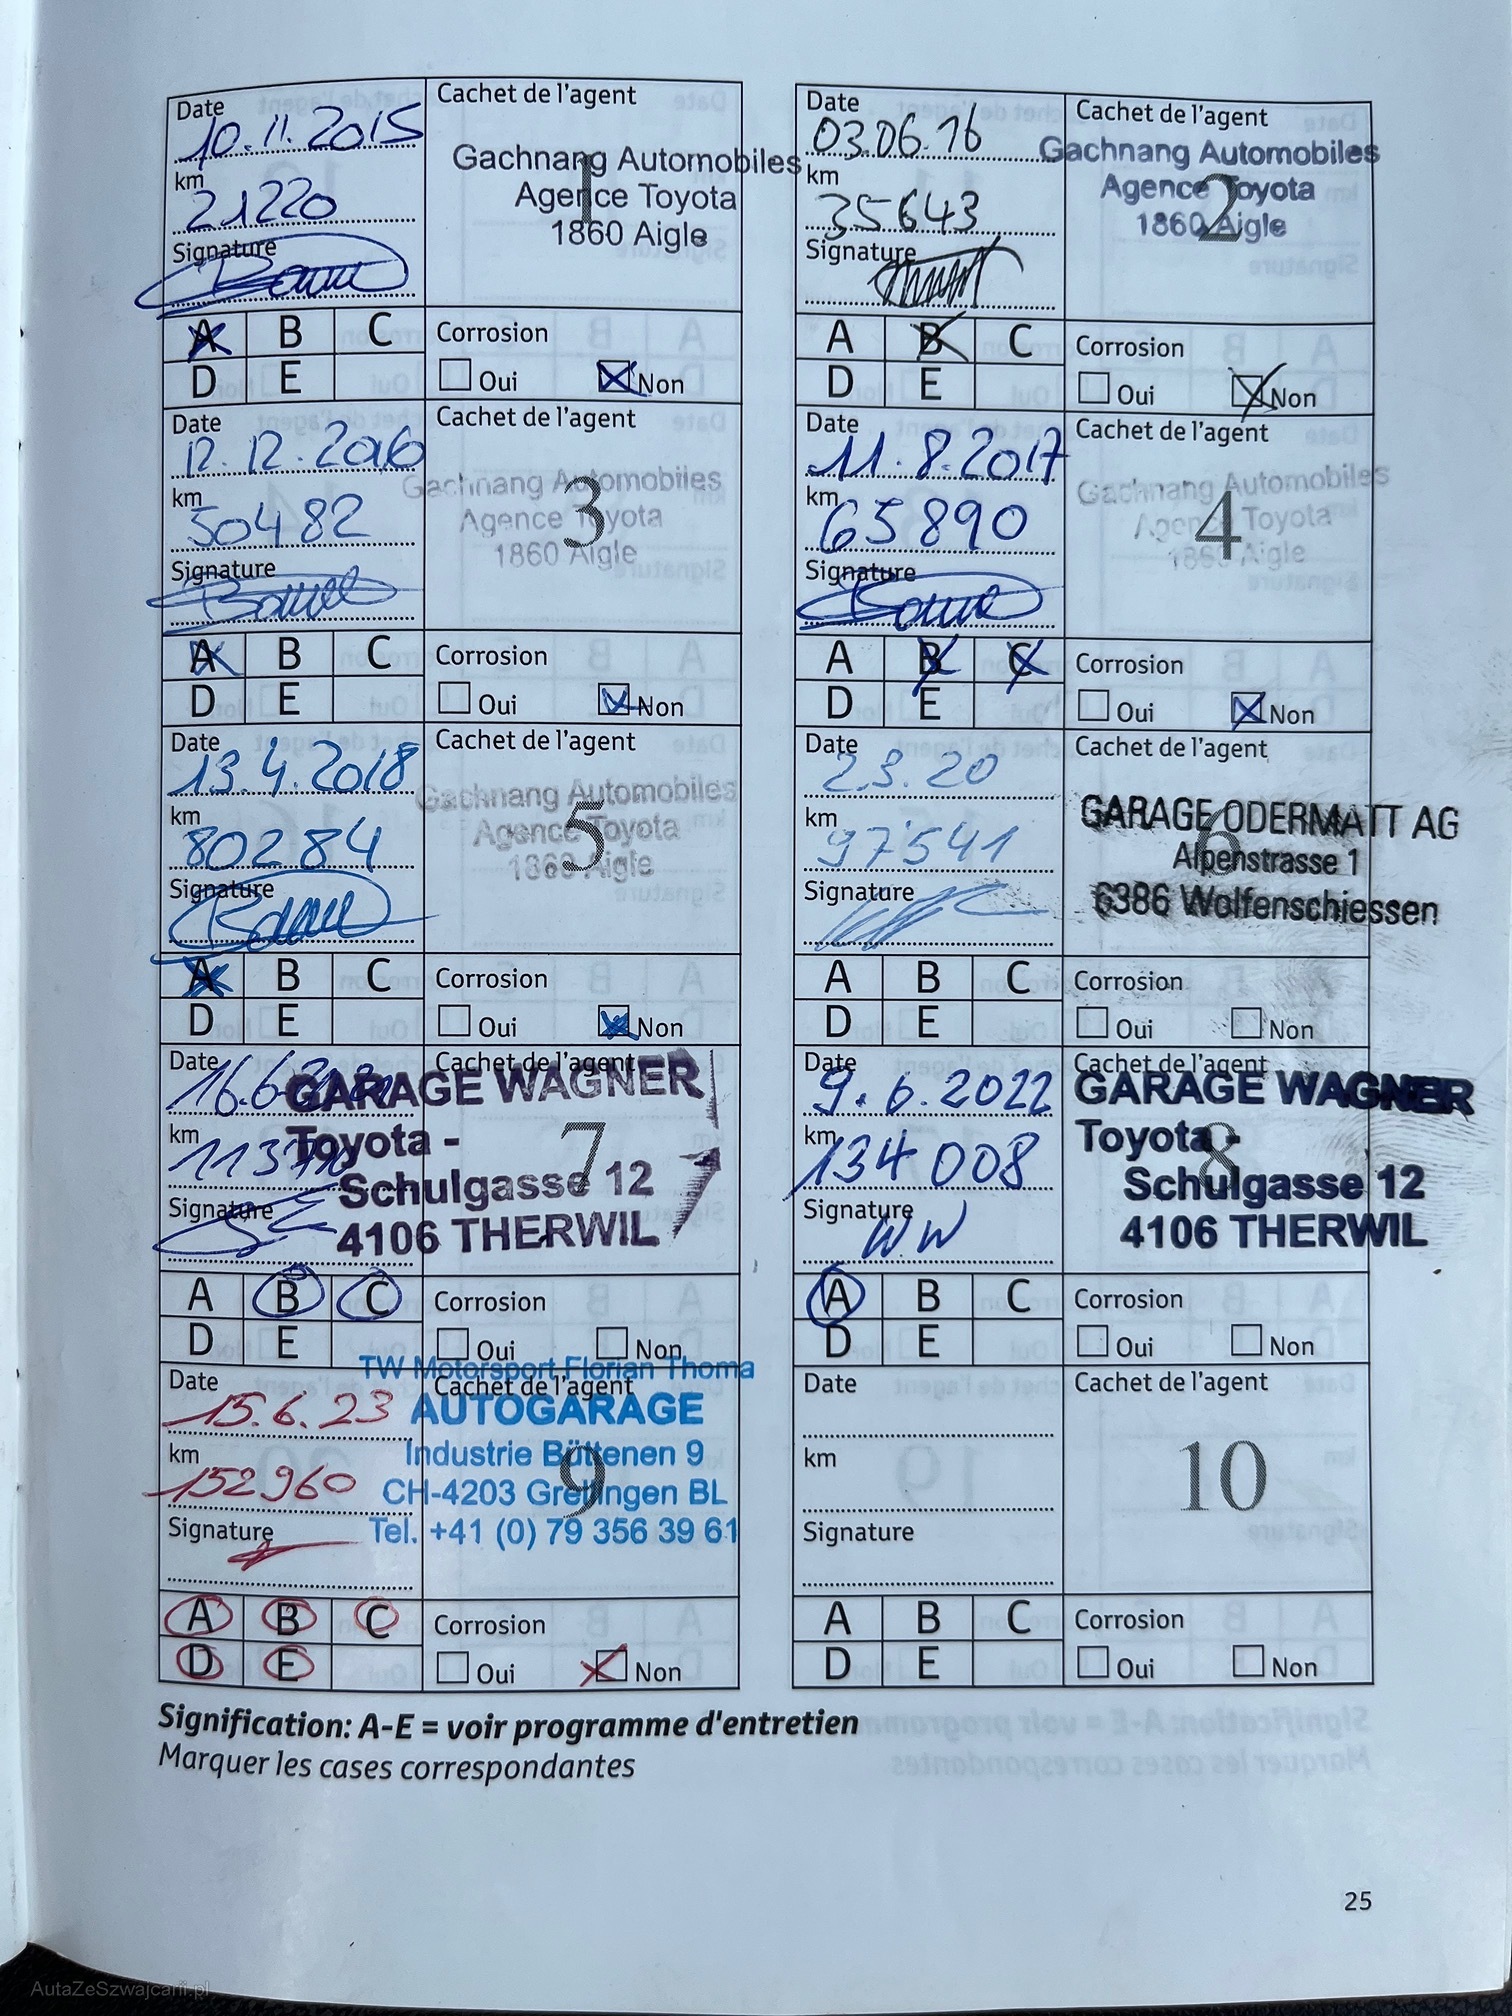 Date
10.11.2015
km
21220
Signature
Cachet de l'agent
1
Gachnang Automobiles
Agence Toyota
1860 Aigle
A B C
D E
Corrosion
Oui Non
Date
03.06.16
km
35643
Signature
Cachet de l'agent
2
Gachnang Automobiles
Agence Toyota
1860 Aigle
A B C
D E
Corrosion
Oui Non
Date
12.12.2016
km
50482
Signature
Cachet de l'agent
3
Gachnang Automobiles
Agence Toyota
1860 Aigle
A B C
D E
Corrosion
Oui Non
Date
11.8.2017
km
65890
Signature
Cachet de l'agent
4
Gachnang Automobiles
Agence Toyota
1860 Aigle
A B C
D E
Corrosion
Oui Non
Date
13.4.2018
km
80284
Signature
Cachet de l'agent
5
Gachnang Automobiles
Agence Toyota
1860 Aigle
A B C
D E
Corrosion
Oui Non
Date
2.3.20
km
97541
Signature
Cachet de l'agent
6
GARAGE ODERMATT AG
Alpenstrasse 1
6386 Wolfenschiessen
A B C
D E
Corrosion
Oui Non
Date
km
Signature
Cachet de l'agent
7
GARAGE WAGNER
Toyota -
Schulgasse 12
4106 THERWIL
A B C
D E
Corrosion
Oui Non
Date
9.6.2022
km
134008
Signature
WW
Cachet de l'agent
8
GARAGE WAGNER
Toyota -
Schulgasse 12
4106 THERWIL
A B C
D E
Corrosion
Oui Non
Date
15.6.23
km
152960
Signature
TW Motorsport Florian Thoma
Cachet de l'agent
AUTOGARAGE
9
Industrie Büttenen 9
CH-4203 Grellingen BL
Tel. +41 (0) 79 356 39 61
A B C
D E
Corrosion
Oui Non
Date
km
Signature
Cachet de l'agent
10
A B C
D E
Corrosion
Oui Non
Signification: A-E = voir programme d'entretien
Marquer les cases correspondantes
25
AutaZeSzwajcarii.pl